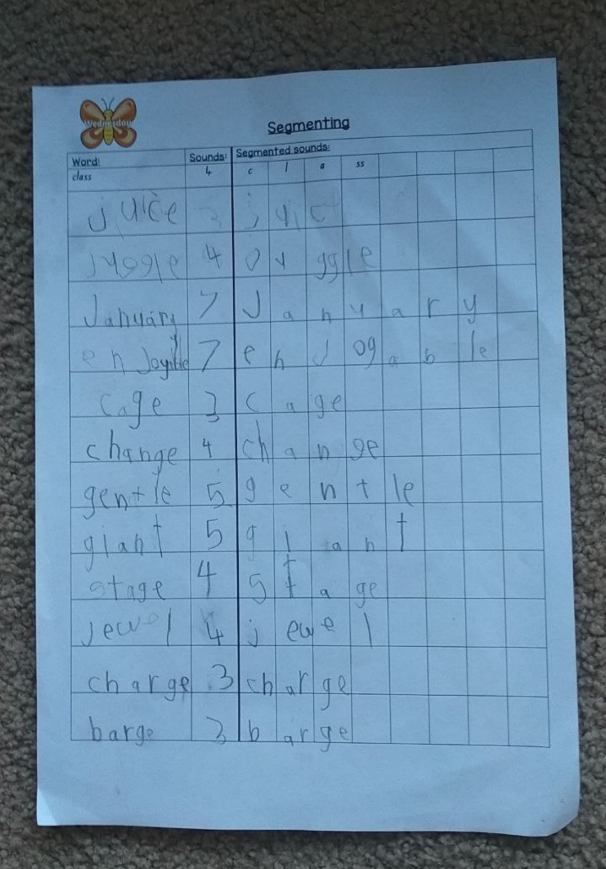 Wednesday
Segmenting
Word: Sounds: Segmented sounds:
class 4 c l a ss
juice 3 j ui c
juggle 4 J u ggle
January 7 J a n u a r y
enjoyable 7 e n J og a b le
cage 3 c a ge
change 4 ch a n ge
gentle 5 g e n t le
giant 5 g i a n t
stage 4 s t a ge
jewel 4 j ew e l
charge 3 ch ar ge
barge 3 b ar ge